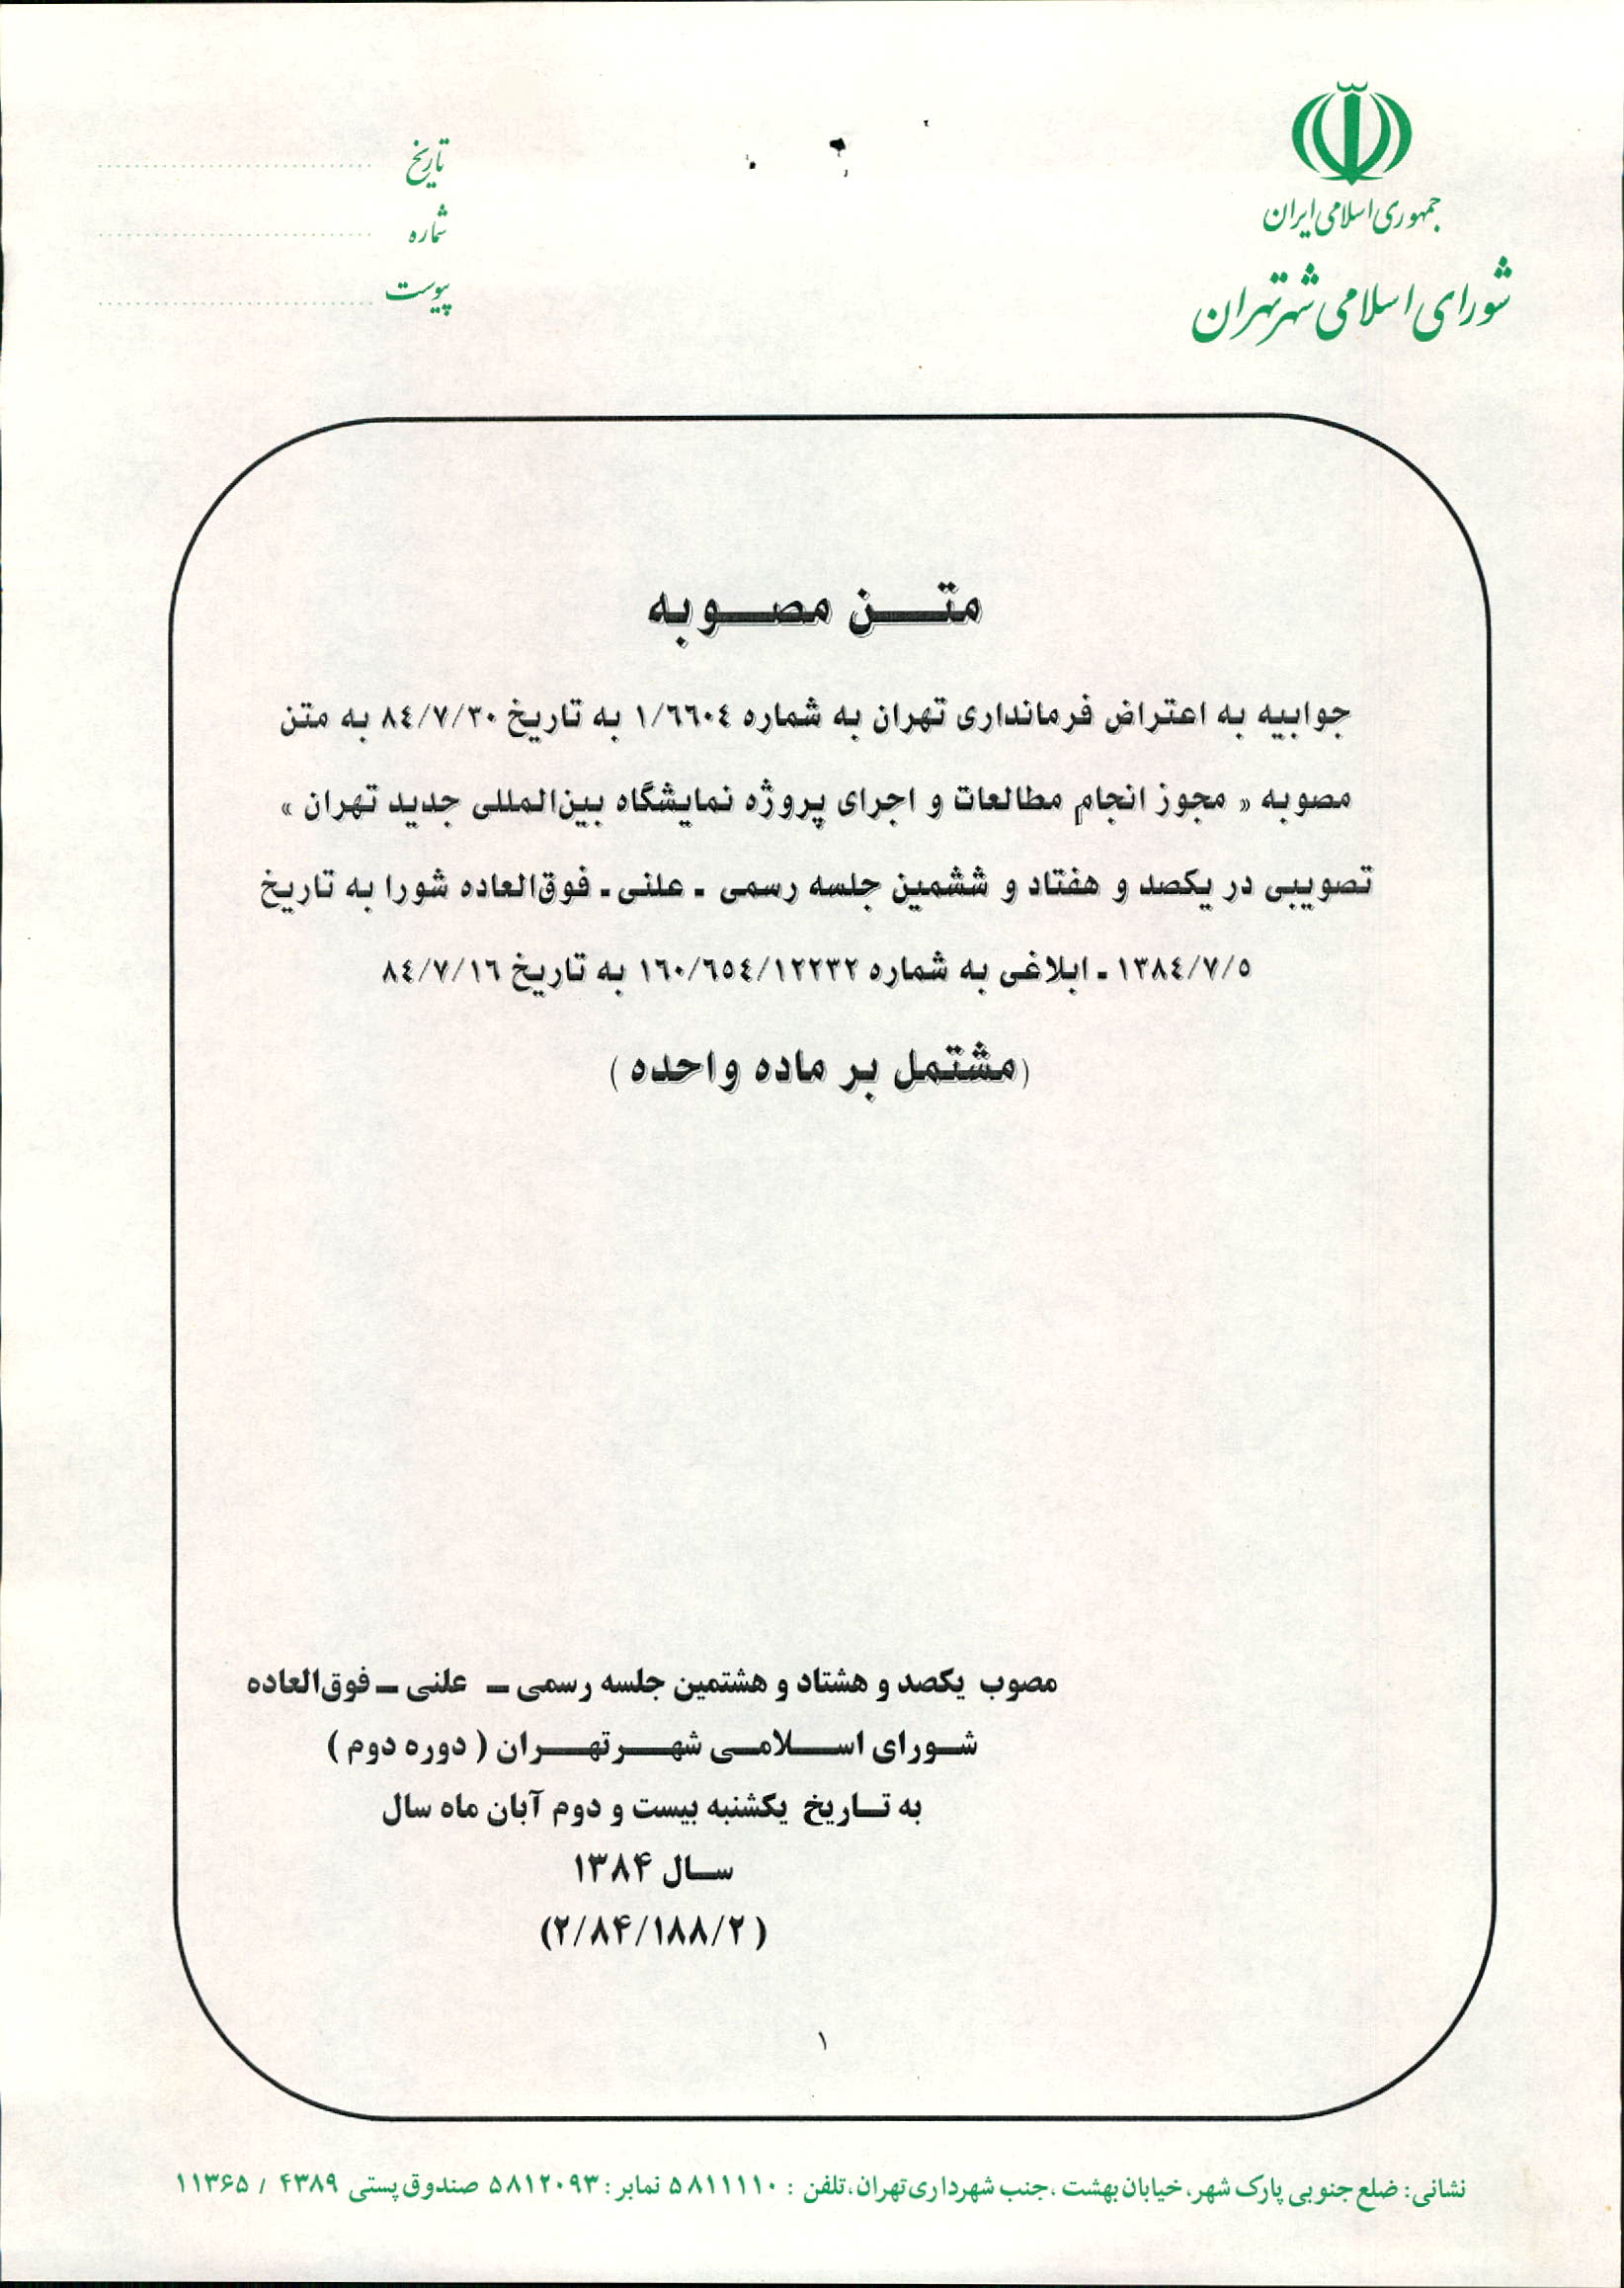 جمهوری اسلامی ایران
شورای اسلامی شهر تهران
تاریخ
شماره
پیوست
متن مصوبه
جوابیه به اعتراض فرمانداری تهران به شماره ۱/٦٦۰٤ به تاریخ ۸٤/۷/۳۰ به متن
مصوبه « مجوز انجام مطالعات و اجرای پروژه نمایشگاه بین‌المللی جدید تهران »
تصویبی در یکصد و هفتاد و ششمین جلسه رسمی ـ علنی ـ فوق‌العاده شورا به تاریخ
۱۳۸٤/۷/۵ ـ ابلاغی به شماره ۱٦۰/٦۵٤/۱۲۲۳۲ به تاریخ ۸٤/۷/۱٦
(مشتمل بر ماده واحده )
مصوب یکصد و هشتاد و هشتمین جلسه رسمی ـ علنی ـ فوق‌العاده
شورای اسلامی شهر تهران ( دوره دوم )
به تاریخ یکشنبه بیست و دوم آبان ماه سال
سال ۱۳۸۴
(۲/۸۴/۱۸۸/۲ )
۱
نشانی: ضلع جنوبی پارک شهر، خیابان بهشت ، جنب شهرداری تهران، تلفن : ۵۸۱۱۱۱۰ نمابر : ۵۸۱۲۰۹۳ صندوق پستی ۴۳۸۹ / ۱۱۳۶۵